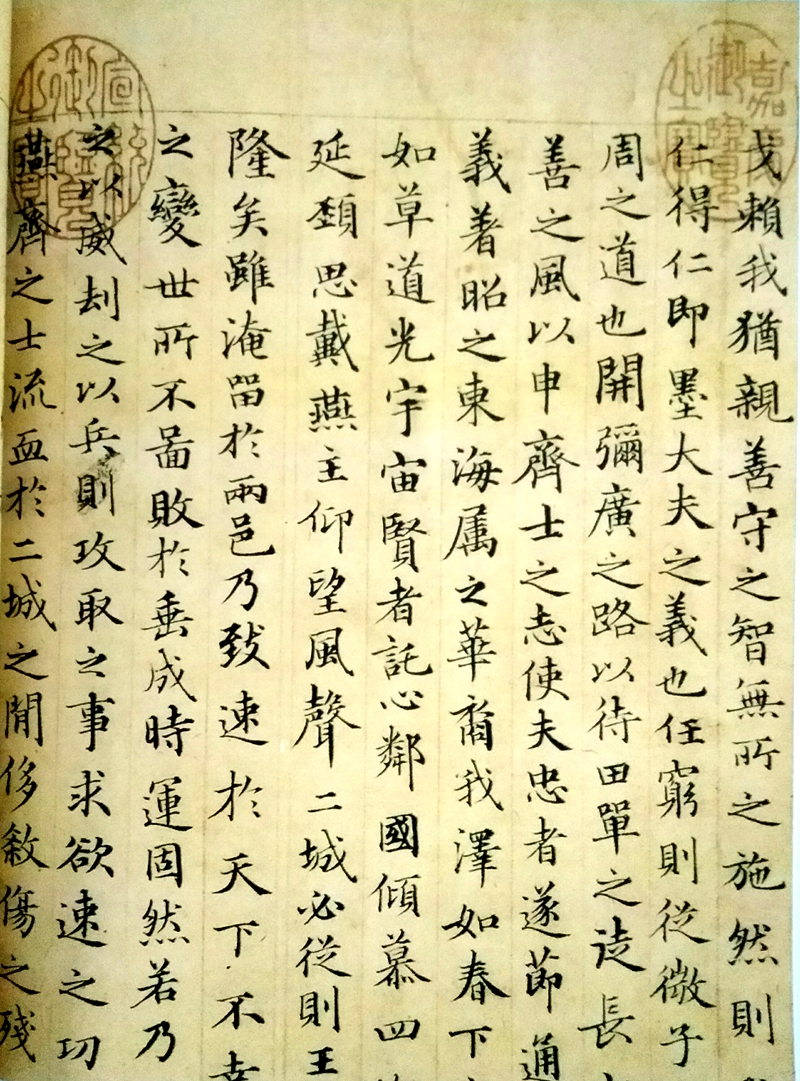 嘉
御覽
之寶
戈賴我猶親善守之智無所之施然則
仁得仁即墨大夫之義也任窮則從微子
周之道也開彌廣之路以待田單之徒長
善之風以申齊士之志使夫忠者遂節通
義著昭之東海属之華裔我澤如春下
如草道光宇宙賢者託心鄰國傾慕四
延頸思戴燕主仰望風聲二城必從則王
隆矣雖淹留於兩邑乃致速於天下不幸
之變世所不啚敗於垂成時運固然若乃
之以威刦之以兵則攻取之事求欲速之功
燕齊之士流血於二城之間侈敘傷之殘
宣統
御覽
之寶